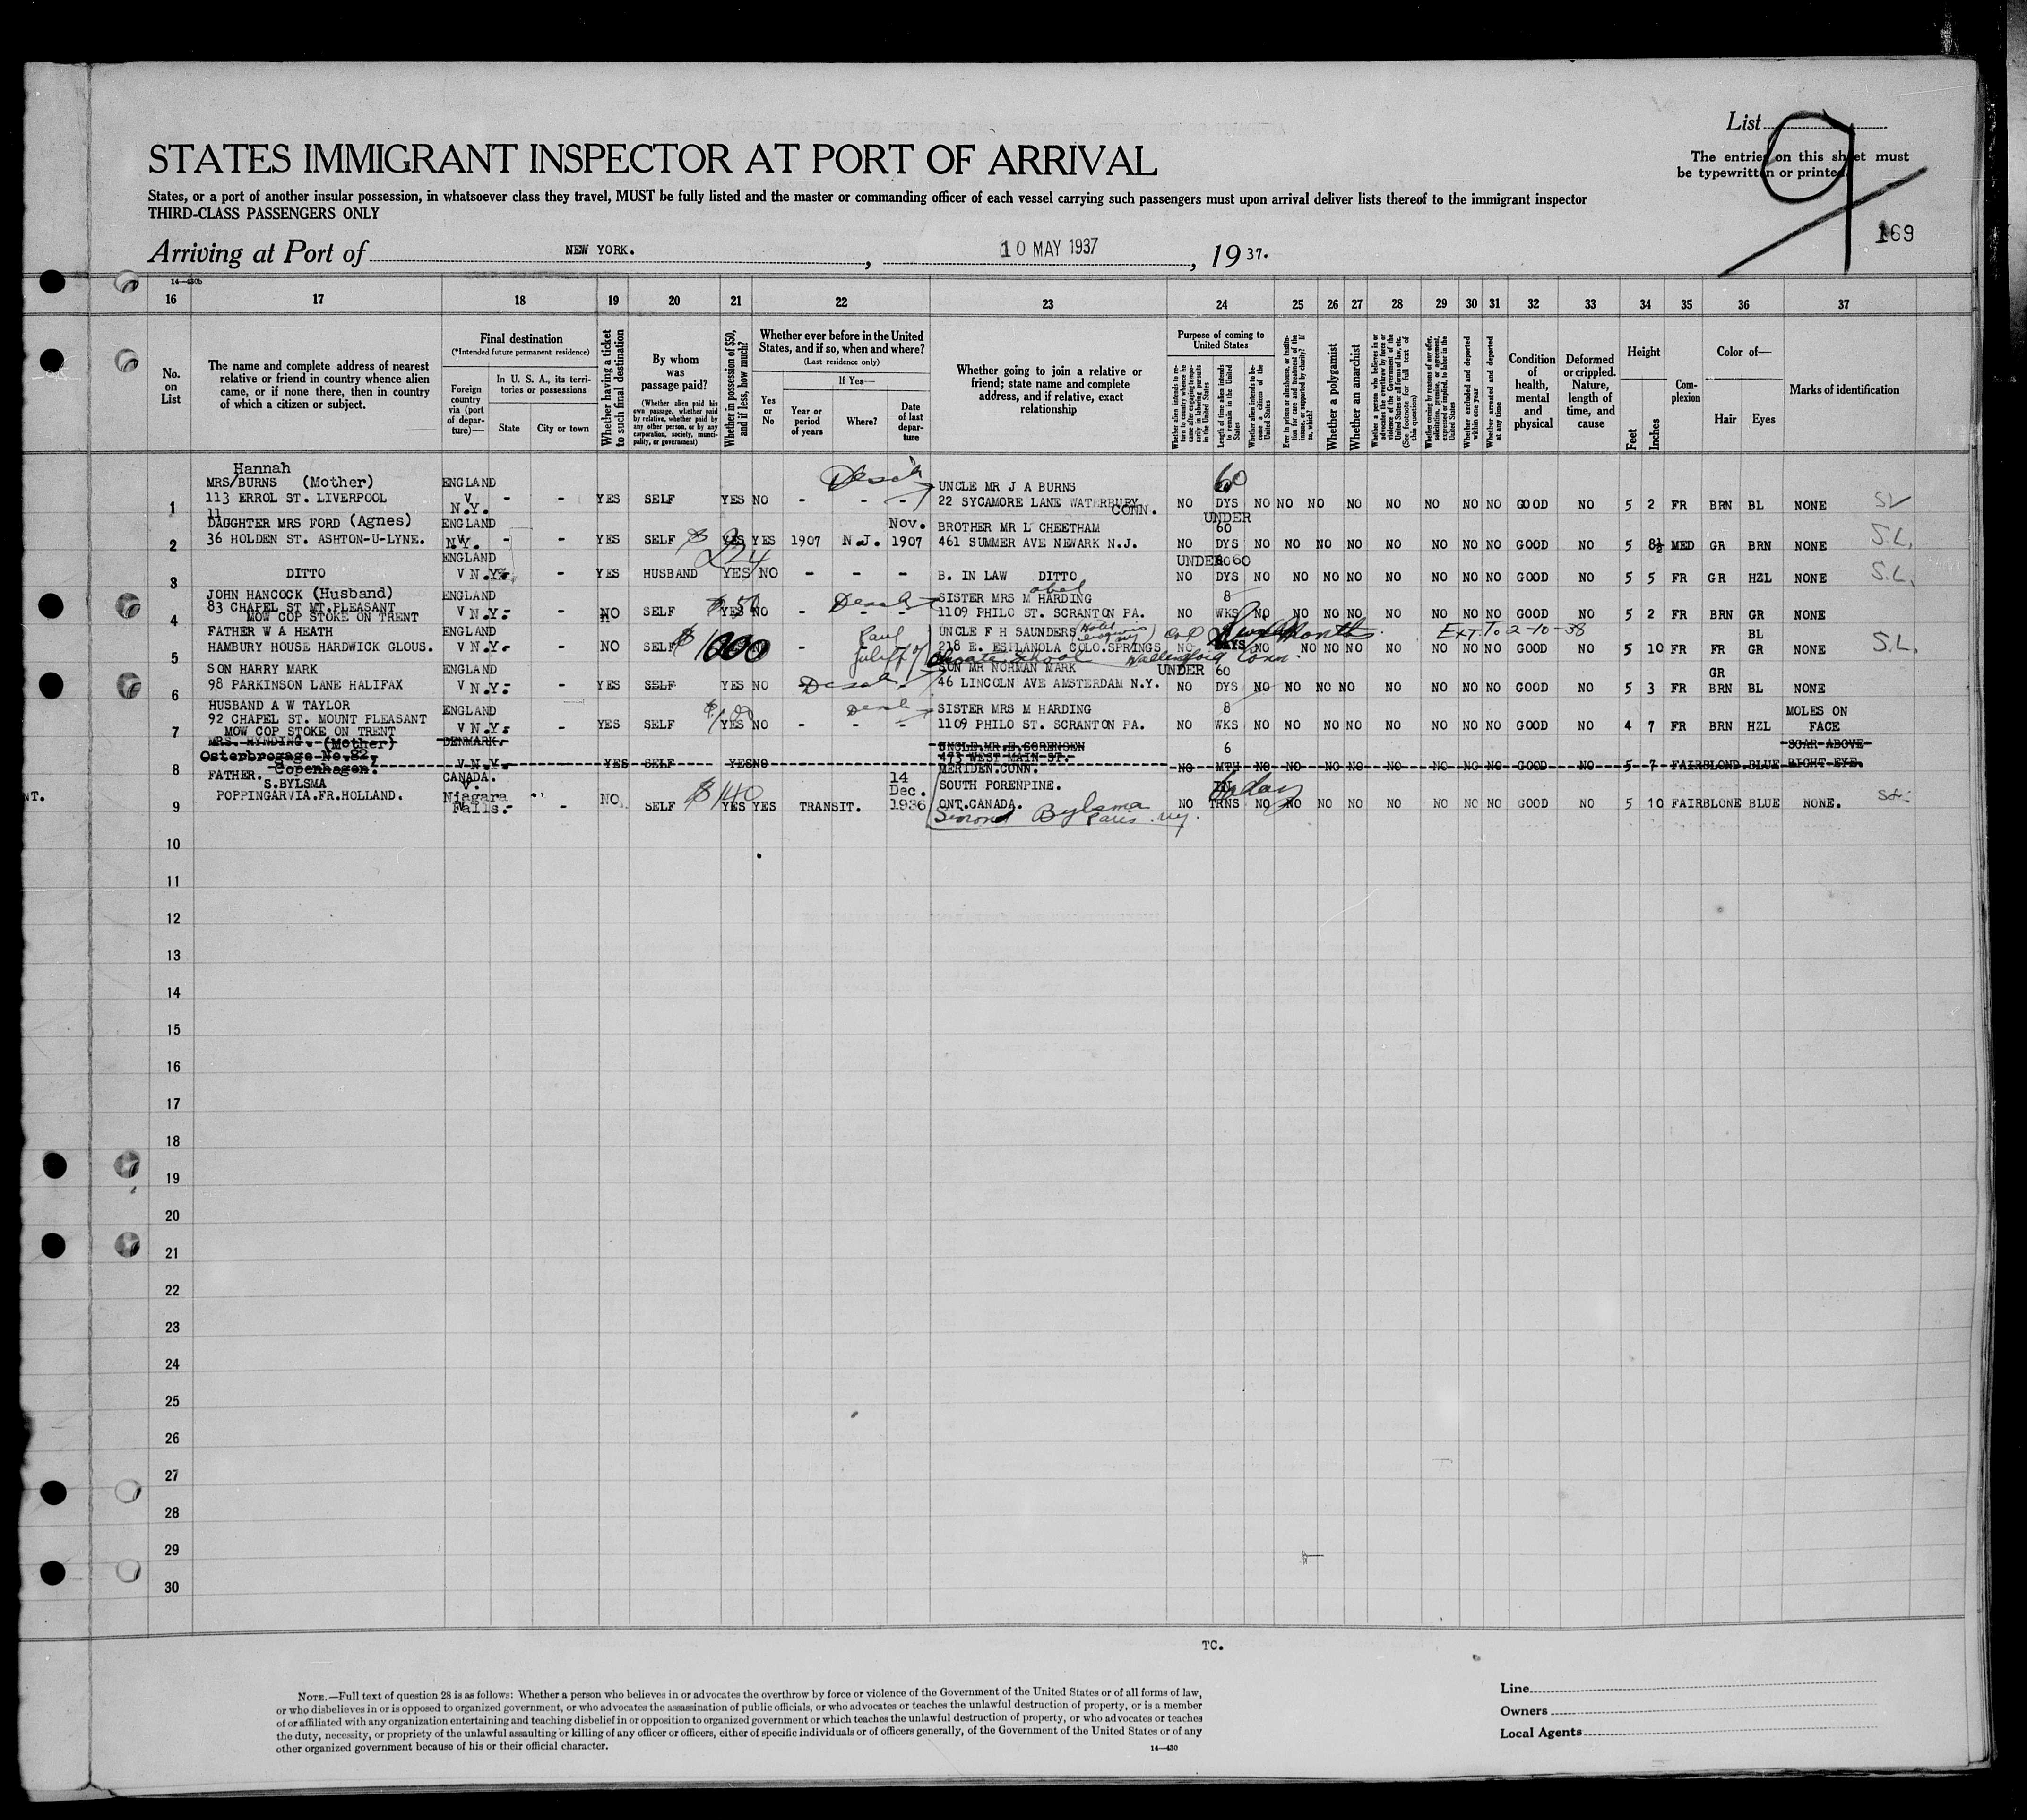 List 9
The entries on this sheet must
be typewritten or printed.
169
STATES IMMIGRANT INSPECTOR AT PORT OF ARRIVAL
States, or a port of another insular possession, in whatsoever class they travel, MUST be fully listed and the master or commanding officer of each vessel carrying such passengers must upon arrival deliver lists thereof to the immigrant inspector
THIRD-CLASS PASSENGERS ONLY
Arriving at Port of NEW YORK. , 10 MAY 1937 , 19 37.
14—430b
16 17 18 19 20 21 22 23 24 25 26 27 28 29 30 31 32 33 34 35 36 37
No. on List
The name and complete address of nearest relative or friend in country whence alien came, or if none there, then in country of which a citizen or subject.
Final destination
(*Intended future permanent residence)
Foreign country via (port of departure)—
In U. S. A., its territories or possessions
State City or town
Whether having a ticket to such final destination
By whom was passage paid?
(Whether alien paid his own passage, whether paid by relative, whether paid by any other person, or by any corporation, society, municipality, or government)
Whether in possession of $50, and if less, how much?
Whether ever before in the United States, and if so, when and where?
(Last residence only)
Yes or No
If Yes—
Year or period of years Where? Date of last departure
Whether going to join a relative or friend; state name and complete address, and if relative, exact relationship
Purpose of coming to United States
Whether alien intends to return to country whence he came after engaging temporarily in laboring pursuits in the United States
Length of time alien intends to remain in the United States
Whether alien intends to become a citizen of the United States
Ever in prison or almshouse, or institution for care and treatment of the insane, or supported by charity? If so, which?
Whether a polygamist
Whether an anarchist
Whether a person who believes in or advocates the overthrow by force or violence of the Government of the United States or all forms of law, etc. (See footnote for full text of this question)
Whether coming by reasons of any offer, solicitation, promise, or agreement, expressed or implied, to labor in the United States
Whether excluded and deported within one year
Whether arrested and deported at any time
Condition of health, mental and physical
Deformed or crippled. Nature, length of time, and cause
Height
Feet Inches
Complexion
Color of—
Hair Eyes
Marks of identification
Hannah
MRS/BURNS (Mother) ENGLAND UNCLE MR J A BURNS 60
1 113 ERROL ST. LIVERPOOL V N.Y. - - YES SELF YES NO - - - 22 SYCAMORE LANE WATERBURY CONN. NO DYS NO NO NO NO NO NO NO NO GOOD NO 5 2 FR BRN BL NONE
DAUGHTER MRS FORD (Agnes) ENGLAND Nov. BROTHER MR L CHEETHAM UNDER 60
2 36 HOLDEN ST. ASHTON-U-LYNE. V N.Y. - - YES SELF $ 224 YES YES 1907 N.J. 1907 461 SUMMER AVE NEWARK N.J. NO DYS NO NO NO NO NO NO NO NO GOOD NO 5 8½ MED GR BRN NONE S.L.
ENGLAND UNDER 60
3 DITTO V N.Y. - YES HUSBAND YES NO - - - B. IN LAW DITTO NO DYS NO NO NO NO NO NO NO NO GOOD NO 5 5 FR GR HZL NONE S.L.
JOHN HANCOCK (Husband) ENGLAND SISTER MRS M HARDING 8
4 83 CHAPEL ST MT.PLEASANT V N.Y. - NO SELF YES NO - - - 1109 PHILO ST. SCRANTON PA. NO WKS NO NO NO NO NO NO NO NO GOOD NO 5 2 FR BRN GR NONE
MOW COP STOKE ON TRENT
FATHER W A HEATH ENGLAND UNCLE F H SAUNDERS Months. EXT. To 2-10-38 BL
5 HAMBURY HOUSE HARDWICK GLOUS. V N.Y. - NO SELF $ 1000 - 218 E. ESPLANOLA COLO.SPRINGS NO DAYS NO NO NO NO NO NO NO NO GOOD NO 5 10 FR FR GR NONE S.L.
Choate School Wallingford Conn.
SON HARRY MARK ENGLAND SON MR NORMAN MARK UNDER 60 GR
6 98 PARKINSON LANE HALIFAX V N.Y. - YES SELF YES NO - 46 LINCOLN AVE AMSTERDAM N.Y. NO DYS NO NO NO NO NO NO NO NO GOOD NO 5 3 FR BRN BL NONE
HUSBAND A W TAYLOR ENGLAND SISTER MRS M HARDING 8 MOLES ON
7 92 CHAPEL ST. MOUNT PLEASANT V N.Y. - YES SELF YES NO - - - 1109 PHILO ST. SCRANTON PA. NO WKS NO NO NO NO NO NO NO NO GOOD NO 4 7 FR BRN HZL FACE
MOW COP STOKE ON TRENT
MRS. HYNDING. (Mother) DENMARK. UNCLE.MR.E.SORENSEN 6 SCAR ABOVE
8 Osterbrogage No.82, Copenhagen. V.N.Y. YES SELF YES NO 473 WEST MAIN ST. MERIDEN.CONN. NO MTH NO NO NO NO NO NO NO NO GOOD NO 5 7 FAIR BLOND BLUE RIGHT EYE.
FATHER. CANADA. 14 SOUTH PORENPINE.
S.BYLSMA V. Dec.
9 POPPINGARVIA.FR.HOLLAND. Niagara Falls. - - NO SELF $ 140 YES YES TRANSIT. 1936 ONT.CANADA. NO TRNS NO NO NO NO NO NO NO NO GOOD NO 5 10 FAIR BLONE BLUE NONE.
Bylsma
NT.
10
11
12
13
14
15
16
17
18
19
20
21
22
23
24
25
26
27
28
29
30
TC.
NOTE.—Full text of question 28 is as follows: Whether a person who believes in or advocates the overthrow by force or violence of the Government of the United States or of all forms of law,
or who disbelieves in or is opposed to organized government, or who advocates the assassination of public officials, or who advocates or teaches the unlawful destruction of property, or is a member
of or affiliated with any organization entertaining and teaching disbelief in or opposition to organized government or which teaches the unlawful destruction of property, or who advocates or teaches
the duty, necessity, or propriety of the unlawful assaulting or killing of any officer or officers, either of specific individuals or of officers generally, of the Government of the United States or of any
other organized government because of his or their official character.
14—430
Line
Owners
Local Agents